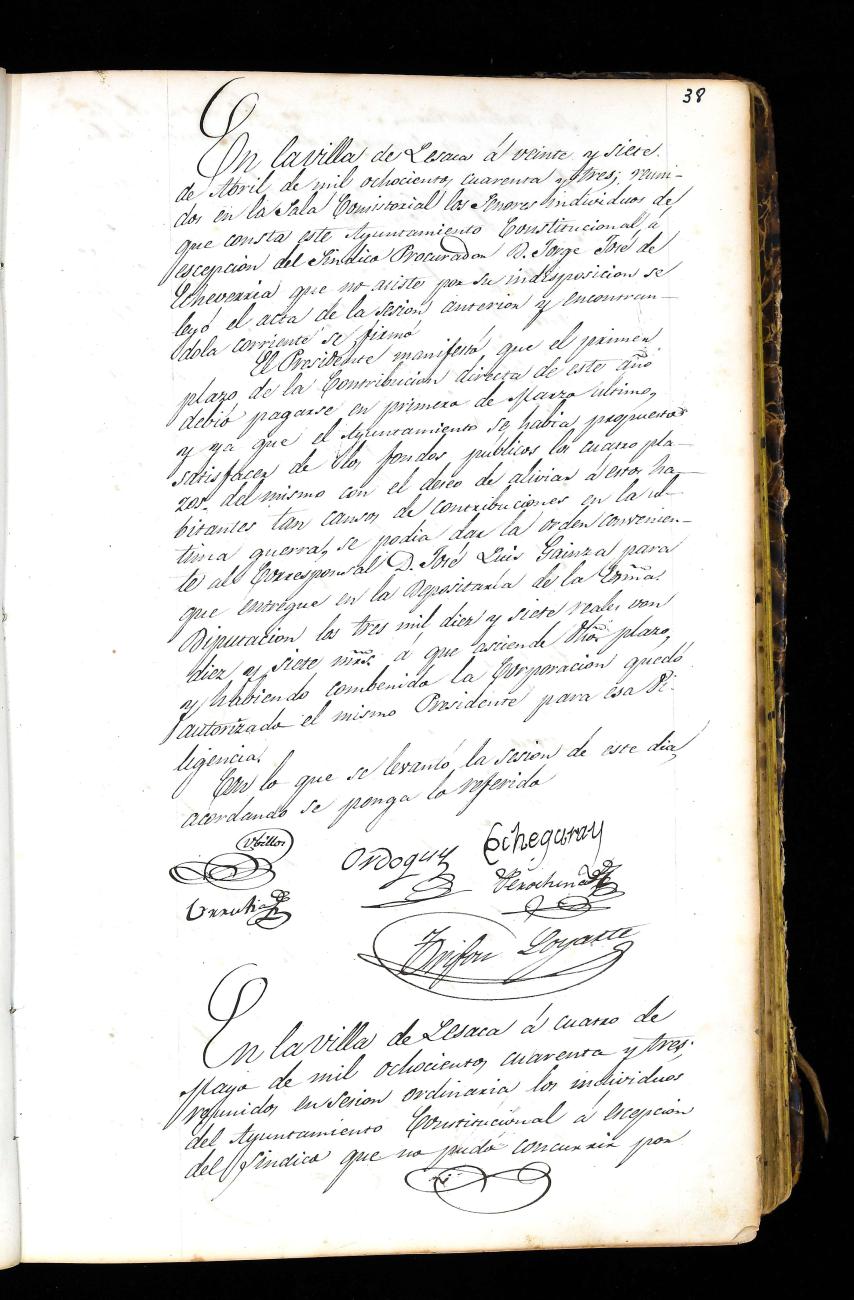 38
En la villa de Lesaca á veinte y siete
de Abril de mil ochocientos cuarenta y tres; reuni-
dos en la Sala Consistorial los Señores individuos de
que consta este Ayuntamiento Constitucional, á
escepcion del Síndico Procurador D. Jorge José de
Echeverria que no asiste por su indisposicion se
leyó el acta de la sesion anterior y encontran-
dola corriente se firmó
El Presidente manifestó que el primer
plazo de la Contribucion directa de este año
debió pagarse en primero de Marzo ultimo,
y ya que el Ayuntamiento se habia propuesto
satisfacer de los fondos públicos los cuatro pla-
zos del mismo con el deseo de aliviar á estos ha-
bitantes tan causos de contribuciones en la ul-
tima guerra, se podia dar la orden convenien-
te al Corresponsal D. José Luis Gainza para
que entregue en la Depositaria de la Exma.
Diputacion los tres mil diez y siete reales von
diez y siete mrs. a que asciende dho. plazo,
y habiendo combenido la Corporacion quedó
autorizado el mismo Presidente para esa di-
ligencia.
Con lo que se levantó la sesion de este dia,
acordando se ponga lo referido
Ubillos
Ordoquy
Echegaray
Urrutia
Trifon Loyarte
En la villa de Lesaca á cuatro de
Mayo de mil ochocientos cuarenta y tres;
reunidos en sesion ordinaria los individuos
del Ayuntamiento Constitucional á escepcion
del Síndico que no pudo concurrir por